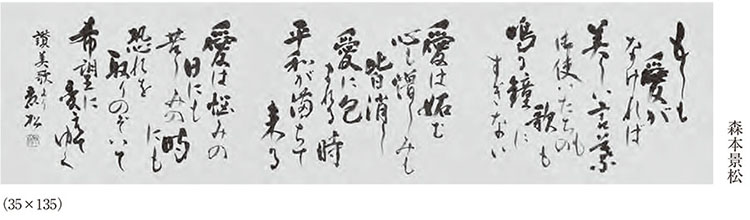 もしも
愛が
なければ
美しい言葉も
御使いたちの
歌も
鳴る鐘に
すぎない
愛は妬む
心も憎しみも
皆消し
愛に包
まれる時
平和が満ちて
来る
愛は悩みの
日にも
苦しみの時
にも
恐れを
取りのぞいて
希望に
変えてゆく
讃美歌より 景松
森本景松
(35×135)